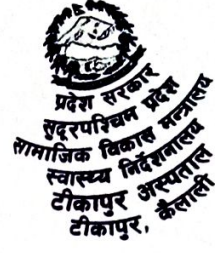 प्रदेश सरकार
सुदूरपश्चिम प्रदेश
सामाजिक विकास मन्त्रालय
स्वास्थ्य निर्देशनालय
टीकापुर अस्पताल
टीकापुर, कैलाली